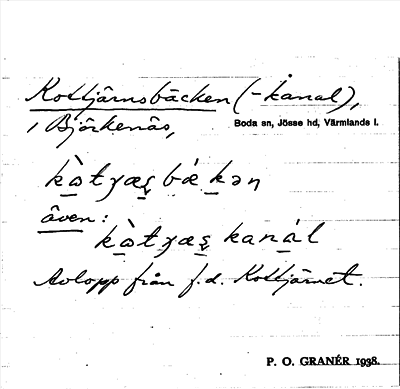 Kottjärnsbäcken (-kanal),
i Björkenäs, Boda sn, Jösse hd, Värmlands l.
kòtɟæʂbǽkən
även:
kòtɟæʂkanál
Avlopp från f.d. Kottjärnet.
P. O. GRANÉR 1938.